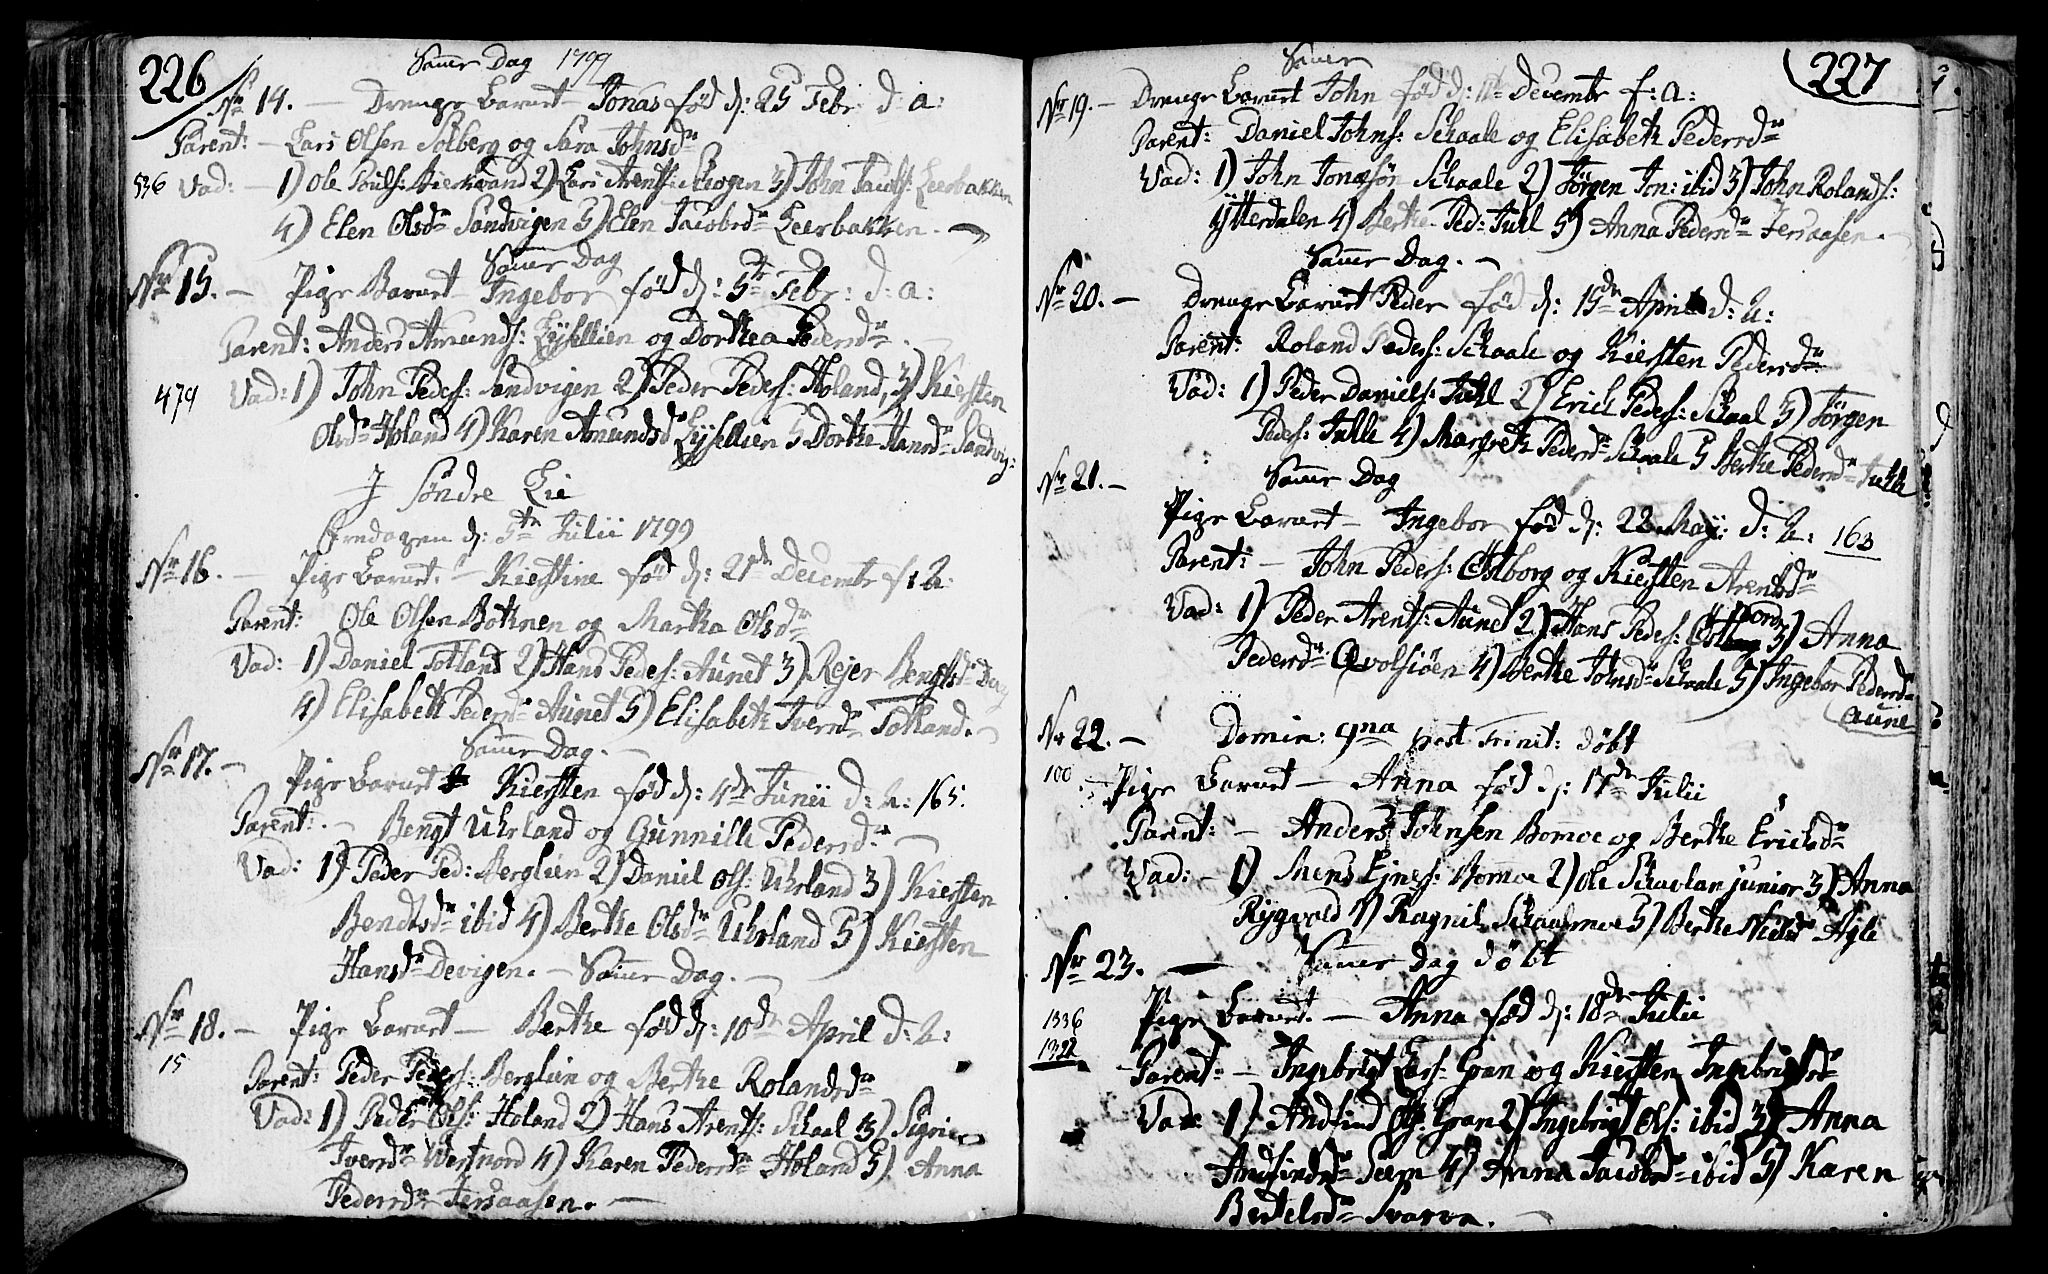 226
Samer Dag 1799
Nr 14. — Drenge Barnet Jonas fød d: 25 Febr. d: a:
Parent: — Lars Olsen Solberg og Sara Johnsdr
536 Vad: — 1) Ole Pouls: 2) Lars Arents: Skogen 3) John Jacobs: Leerbakken
4) Elen Olsdr Sandvigen 5) Elen Jacobsdr Leerbakken. —
Samer Dag
Nr 15. — Pige Barnet Ingebor fød d: 5te Febr: d: a:
Parent: Anders Amunds: Lysellien og Dorthea Pedersdr.
479 Vad: 1) John Peders: Sandvigen 2) Peder Peders: Holand, 3) Kiersten
Olsdr Holand 4) Karen Amundsdr Lysellien 5 Dorthe Hansdr Sandvig:
I Søndre Lie
Fredagen d: 5te Julii 1799
Nr 16. — Pige Barnet. — Kierstine fød d: 21de Decembr f: A:
Parent: Ole Olsen Bøhnen og Martha Olsdr
Vad: 1) Daniel Totland 2) Hans Peders: Aunet 3) Rejer Bengts
4) Elisabeth Pedersdr Aunet 5) Elisabeth Iversdr Totland. —
Samer Dag. —
Nr 17. —
Pige Barnet Kiersten fød d: 4de Junii d: A: 165.
Parent: — Bengt Uhrland og Gunnille Pedersdr —
Vad: 1) Peder Ped: Berglien 2) Daniel Ols: Uhrland 3) Kiersten
Bendtsdr ibid 4) Berthe Olsdr Uhrland 5) Kiersten
Hansdr Devigen. — Samer Dag. —
Nr 18. — Pige Barnet — Berthe fød d: 10de April d: A:
15
Parent: Peder Peders: Berglien og Berthe Rolandsdr
Vad: 1) Peder Ols: Holand 2) Hans Arents: Skaal 3) Sigri
Iversdr Westnord 4) Karen Pedersdr Holand 5) Anna
Pedersdr Jersaasen. —
227
Samer
Nr 19. — Drenge Barnet John fød d: 11te Decembr f: a:
Parent: Daniel Johns: Skaale og Elisabeth Pedersdr
Vad: 1) John Jonasøn Skaale 2) Jørgen Jon: ibid 3) John Rolands:
Ytterdalen 4) Berthe Ped: Jull 5) Anna Pedersdr Jersaasen. —
Samer Dag. —
Nr 20. — Drenge Barnet Peder fød d: 15de April d: A:
Parent: Roland Peders: Skaale og Kiersten Pedersdr
Vad: 1) Peder Daniels: Juhl 2) Erich Peders: Skaal 3) Jørgen
Peders: Julle 4) Margreth Pedersdr Skaale 5 Berthe Pedersdr Julle
Nr 21. — Samer Dag
Pige Barnet — Ingebor fød d: 22 May: d: A: 163
Parent: — John Peders: Østborg og Kiersten Arentsdr
Vad: 1) Peder Arents: Aunet 2) Hans Peders: Østborg 3) Anna
Pedersdr Qvolsiøen 4) Berthe Johnsdr Skaale 5) Ingebor Pedersdr
Aune
Nr 22. — Domin: 9na post Trinit: døbt
100 Pige Barnet — Anna fød d: 17de Julii
Parent: — Anders Johnsen Bomoe og Berthe Erichsdr
Vad: — 1) Mens Ejnes: Bomoe 2) Ole Skavlan junior 3) Anna
Rygvold 4) Ragnil Skaalmoe 5) Berthe Nielsdr Agle
Nr 23. — Samer Dag døbt
1336 Pige Barnet. — Anna fød d: 18de Julii
1322
Parent: — Ingebrigt Lars: Gran og Kiersten Ingebrigtsdr
Vad: 1) Andfind Ols: Gran 2) Ingebrigt Ols: ibid 3) Anna
Andfindsdr Seem 4) Anna Jacobsdr ibid 5) Karen
Bertelsdr Svarva. —